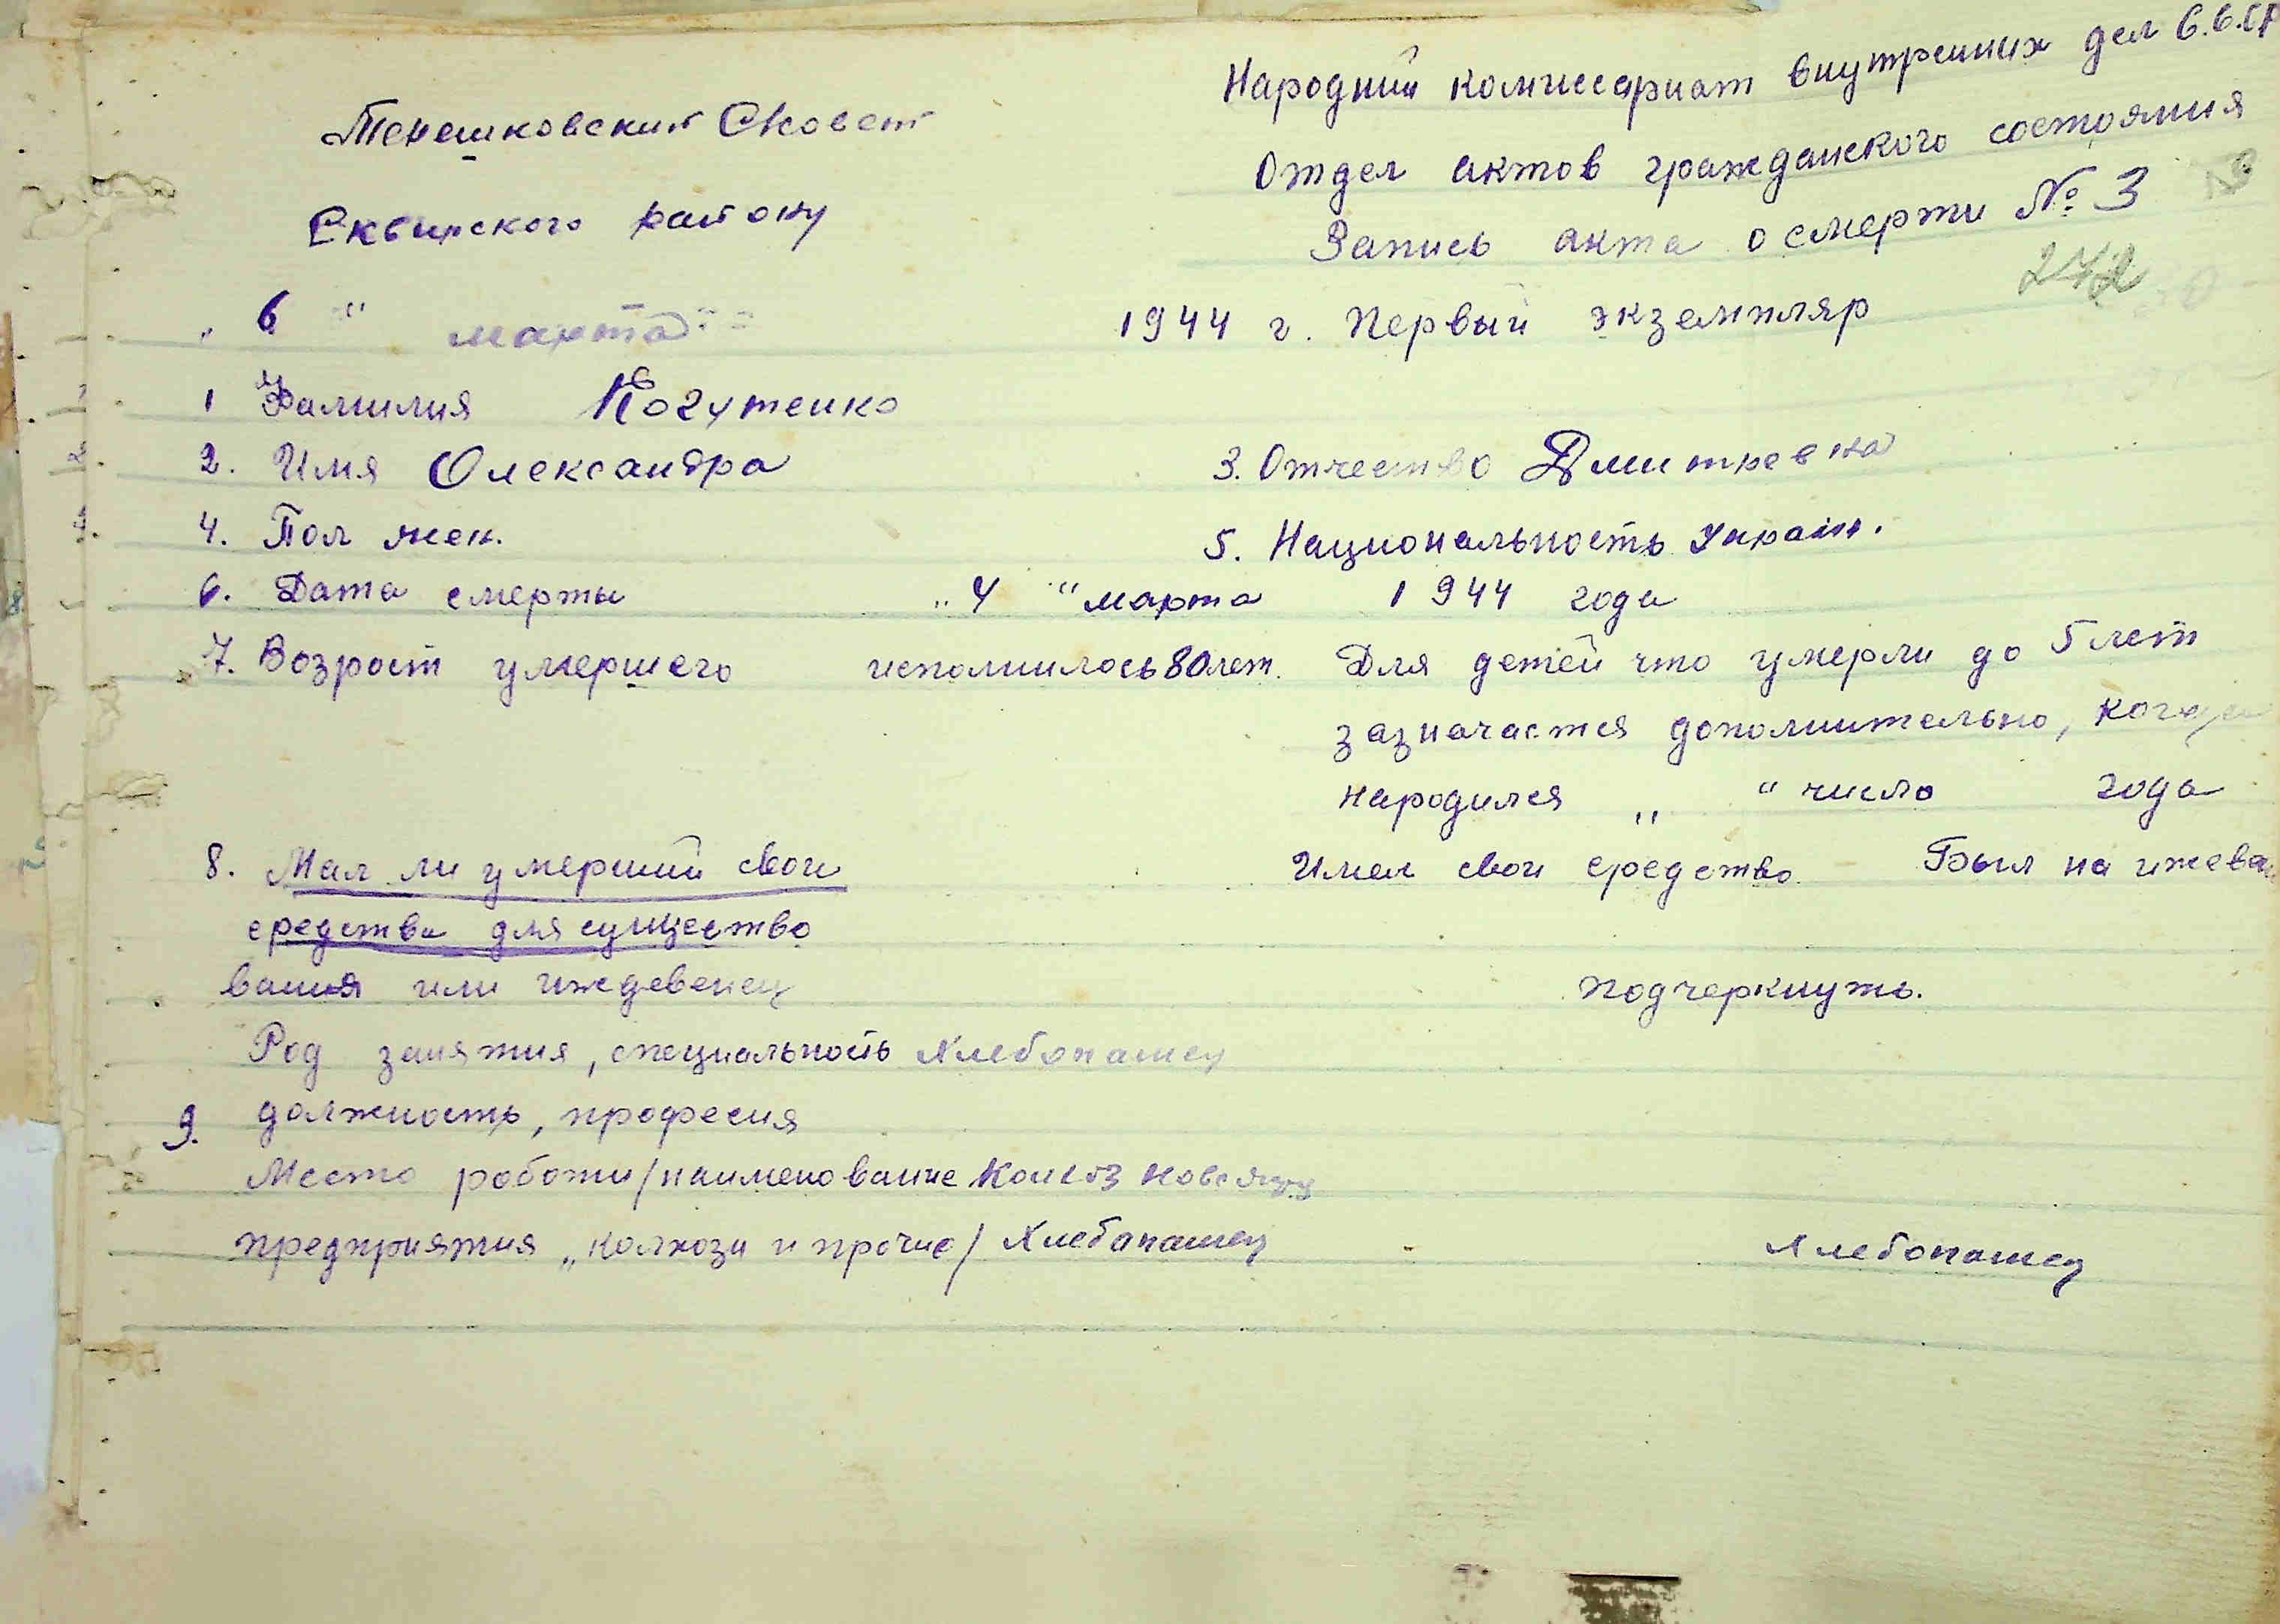 Народний комиссариат внутрених дел С.С.С.Р
Терешковский Совет
Отдел актов гражданского состояния
Сквирского району
Запись акта о смерти № 3
272
„ 6 “ марта 1944 г. Первый экземпляр
1 Фамилия Когутенко
2. Имя Олександра 3. Отчество Дмитревна
4. Пол жен. 5. Национальность Украин.
6. Дата смерты „ 4 “ марта 1944 года
7. Возрост умершего исполнилось 80 лет. Для детей что умерли до 5 лет
зазначается дополнительно, когда
народился „ “ число года
8. Мал ли умерший свои Имел свои средство Был на ижевен
средства для существо
вания или иждевенец подчеркнуть.
Род занятия, специальность Хлебопашец
9. должность, професия
Место роботи/наименование Колхоз
предприятия „колхози и прочие/ Хлебопашец Хлебопашец